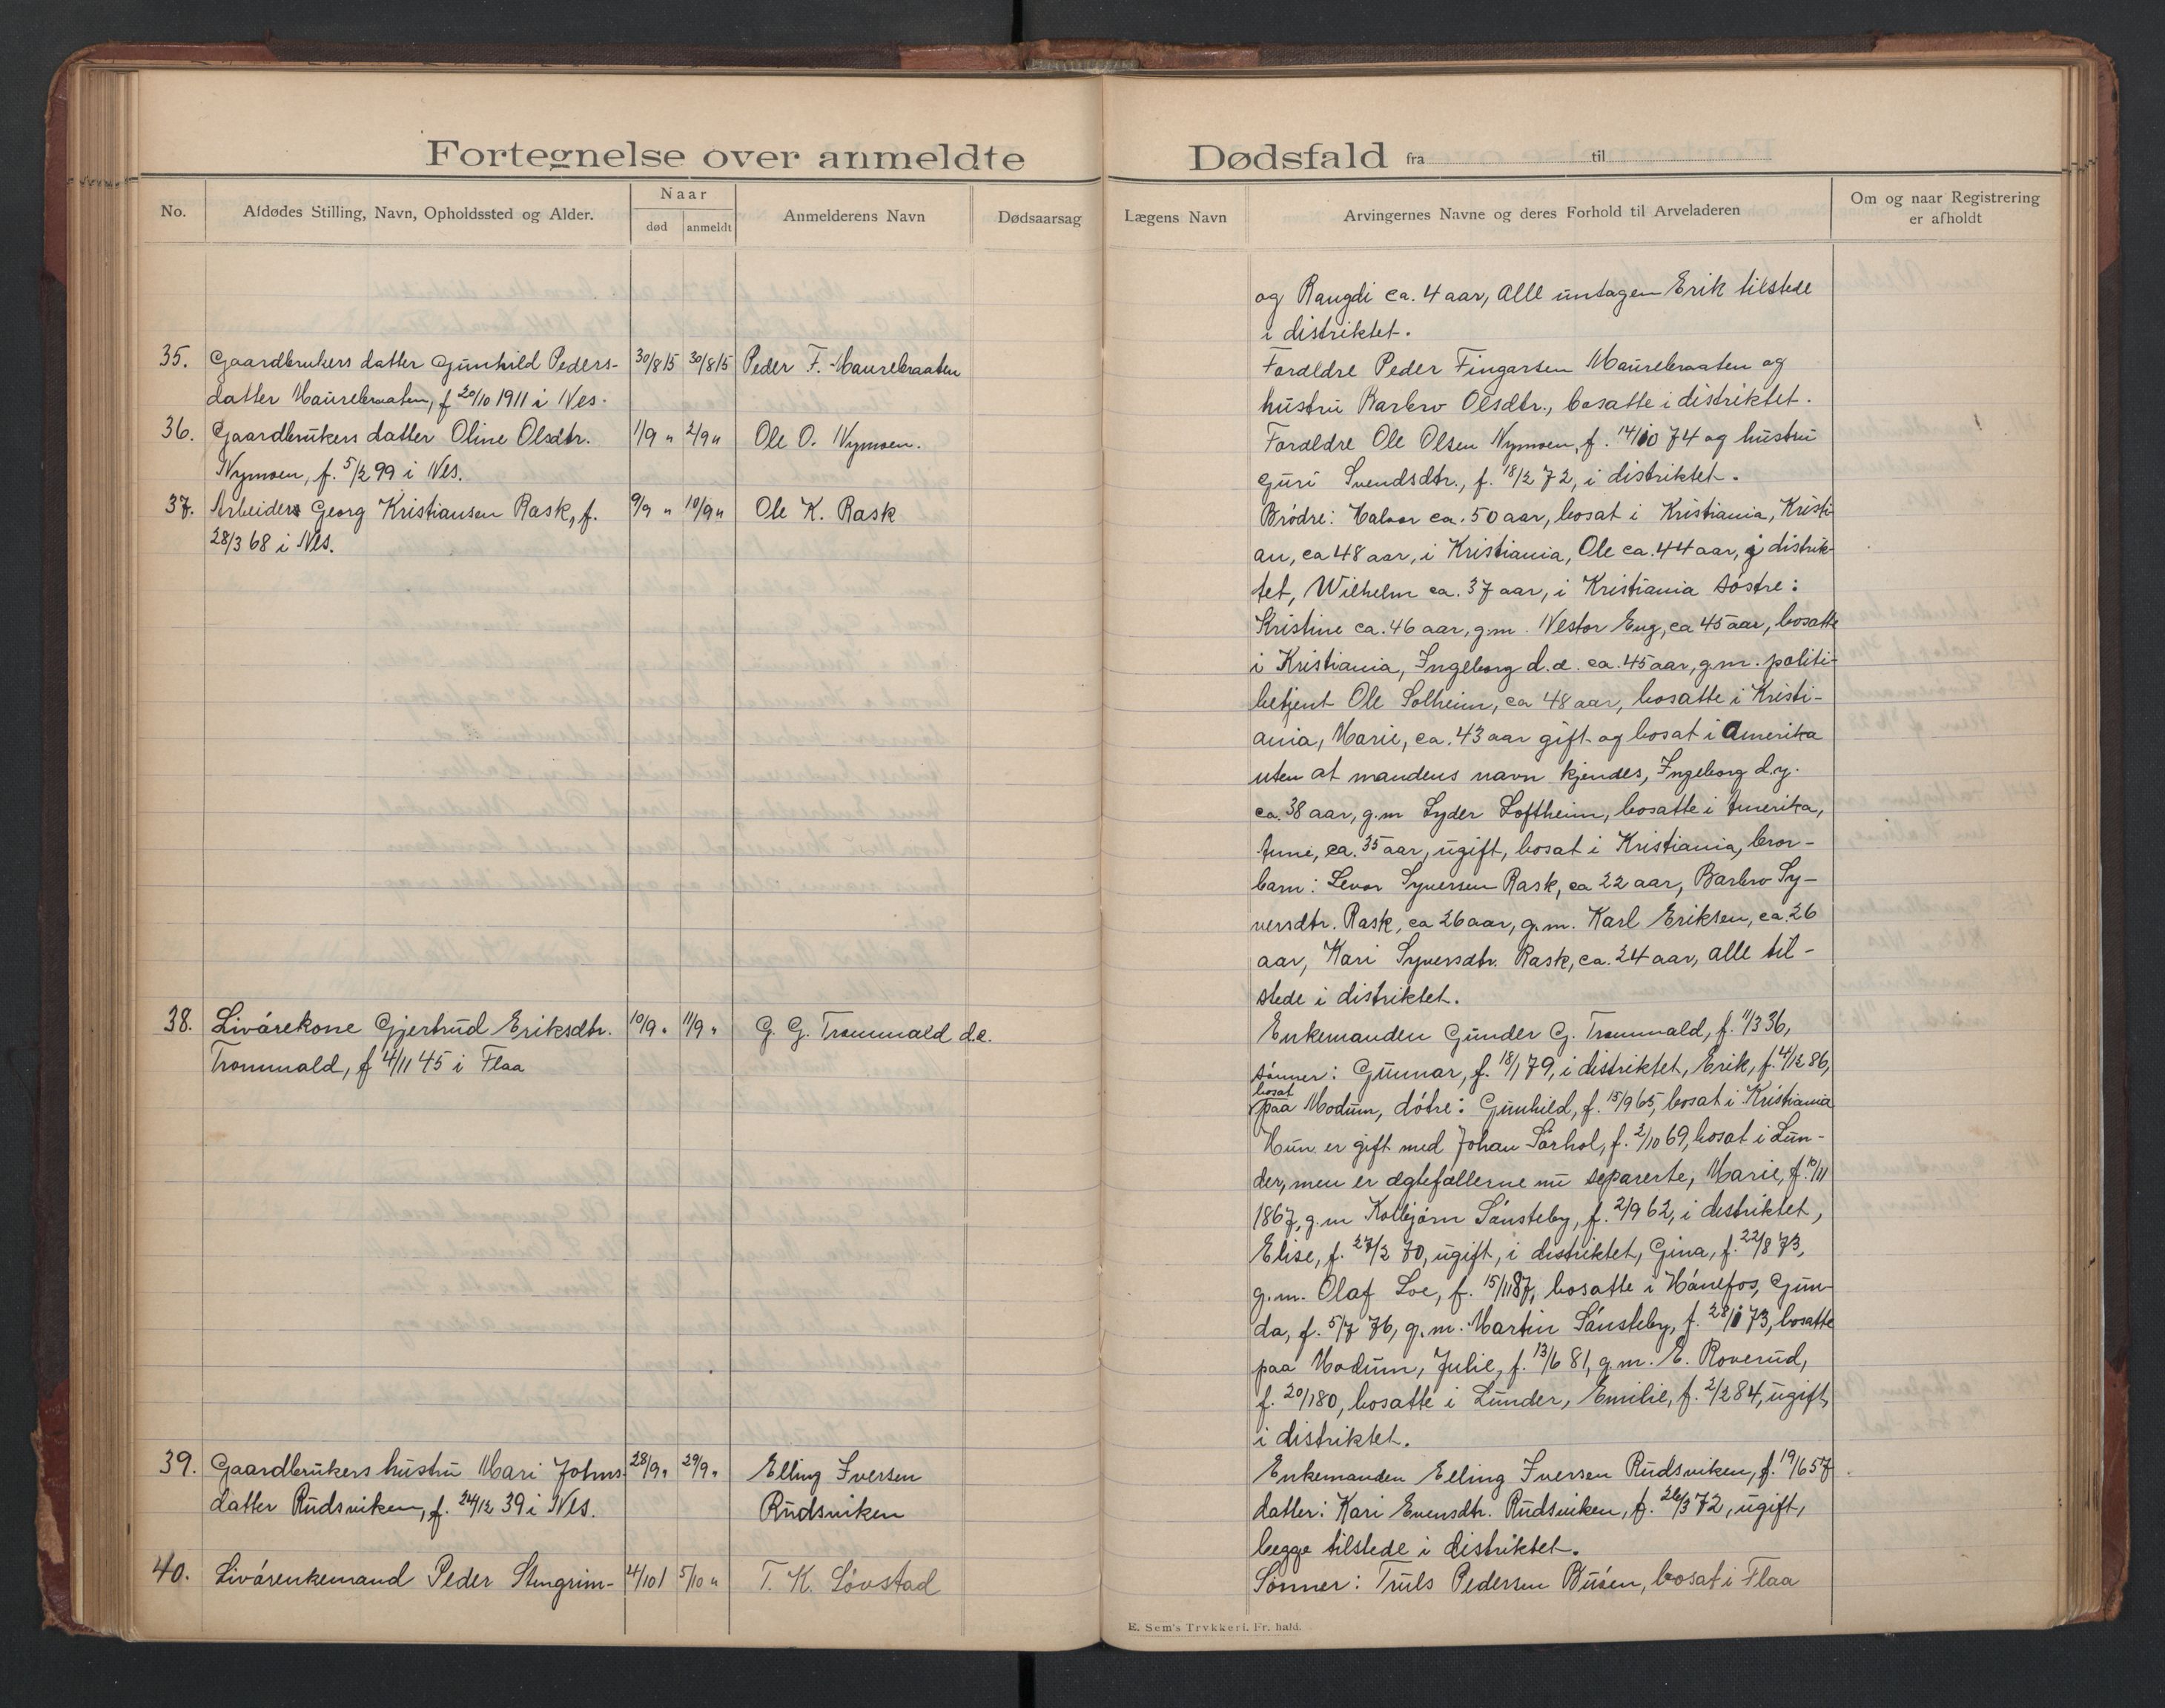 Fortegnelse over anmeldte Dødsfald fra til
No.
Afdødes Stilling, Navn, Opholdssted og Alder.
Naar
død
anmeldt
Anmelderens Navn
Dødsaarsag
Lægens Navn
Arvingernes Navne og deres Forhold til Arveladeren
Om og naar Registrering
er afholdt
og Rangdi ca. 4 aar, alle untagen Erik tilstede
i distriktet.
35. Gaardbrukers datter Gunhild Peders- 30/8 15 30/8 15 Peder F. Maurebraaten
datter Maurebraaten, f 20/10 1911 i Nes.
Forældre Peder Fingarsen Maurebraaten og
hustru Barbro Olsdtr., bosatte i distriktet.
36. Gaardbrukers datter Oline Olsdtr. 1/9 " 2/9 " Ole O. Nymoen.
Nymoen, f. 5/2 99 i Nes.
Forældre Ole Olsen Nymoen, f. 14/10 74 og hustru
Guri Svendsdtr., f. 18/2 72, i distriktet.
37. Arbeider Georg Kristiansen Rask, f. 9/9 " 10/9 " Ole K. Rask
28/3 68 i Nes.
Brödre: Halvor ca. 50 aar, bosat i Kristiania, Kristi-
an, ca 48 aar, i Kristiania, Ole ca. 44 aar, i distrik-
tet, Wilhelm ca. 37 aar, i Kristiania söstre:
Kristine ca. 46 aar, g.m. Nestor Eng, ca 45 aar, bosatte
i Kristiania, Ingeborg d.e. ca. 45 aar, g.m. politi-
betjent Ole Solheim, ca 48 aar, bosatte i Kristi-
ania, Marie, ca. 43 aar gift og bosat i Amerika
uten at mandens navn kjendes, Ingeborg d.y.
ca. 38 aar, g.m Syder Loftheim, bosatte i Amerika,
Anne, ca. 35 aar, ugift, bosat i Kristiania, bror-
barn: Levor Syversen Rask, ca 22 aar, Barbro Sy-
versdtr. Rask, ca 26 aar, g.m. Karl Eriksen, ca. 26
aar, Kari Syversdtr. Rask, ca. 24 aar, alle til-
stede i distriktet.
38. Livörekone Gjertrud Eriksdtr. 10/9 " 11/9 " G. G. Trommald d.e.
Trommald, f 4/11 45 i Flaa
Enkemanden Gunder G. Trommald, f. 11/3 36,
sönner: Gunnar, f. 18/1 79, i distriktet, Erik, f. 4/12 86,
bosat
paa Modum, dötre: Gunhild, f. 15/9 65, bosat i Kristiania
Hun er gift med Johan Sörhol, f. 2/10 69, bosat i Lun-
der, men er ægtefællerne nu separerte, Marie, f. 10/11
1867, g.m Kolbjörn Sönsteby, f. 2/9 62, i distriktet,
Elise, f. 27/2 70, ugift, i distriktet, Gina, f. 22/8 73,
g.m. Olaf Loe, f. 15/11 87, bosatte i Hönefos, Gun-
da, f. 5/7 76, g.m. Martin Sönsteby, f. 28/1 73, bosatte
paa Modum, Julie, f. 13/6 81, g.m. E. Roverud,
f. 20/1 80, bosatte i Lunder, Emilie, f. 2/2 84, ugift,
i distriktet.
39. Gaardbrukers hustru Mari Johns- 28/9 " 29/9 " Elling Iversen
datter Rudsviken, f. 24/12 39 i Nes. Rudsviken
Enkemanden Elling Iversen Rudsviken, f. 19/6 57
datter: Kari Evensdtr. Rudsviken, f. 26/3 72, ugift,
begge tilstede i distriktet.
40. Livörenkemand Peder Stengrim- 4/10 1 5/10 " T. K. Sövstad
Sönner: Truls Pedersen Buöen, bosat i Flaa
E. Sem's Trykkeri. Fr. hald.